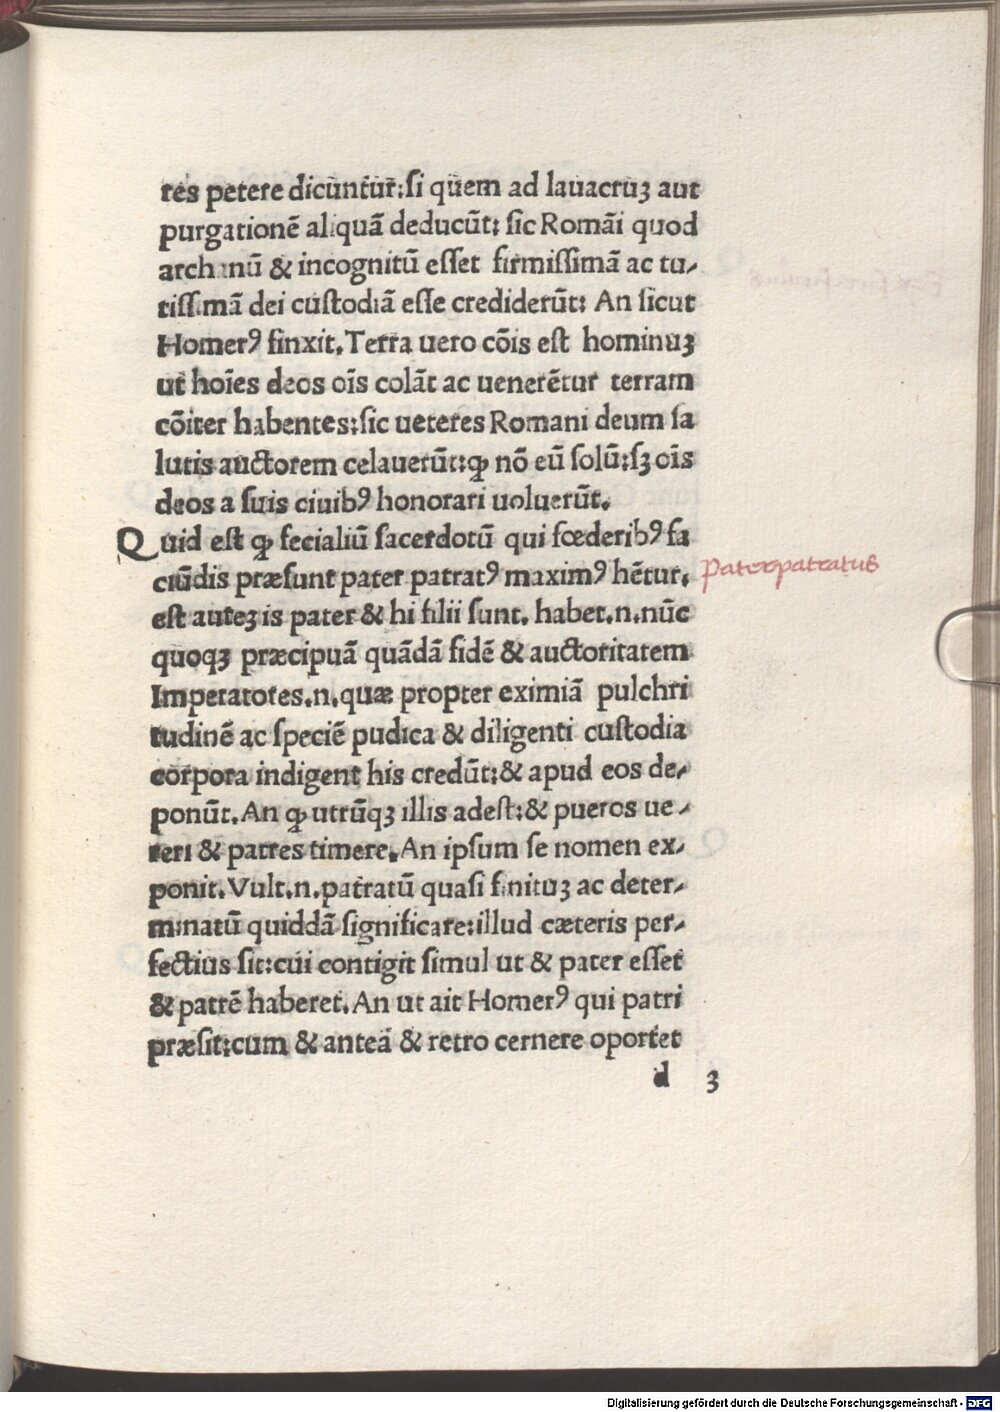 res petere dicuntur:si quem ad lauacruꝫ aut
purgationē aliquā deducūt: sic Romāi quod
archanū & incognitū esset firmissimā ac tu-
tissimā dei custodiā esse crediderūt: An sicut
Homerꝰ finxit. Terra uero cōis est hominuꝫ
ut hoīes deos oīs colāt ac uenerētur terram
cōiter habentes:sic ueteres Romani deum sa
lutis auctorem celauerūt:ꝙ nō eū solū:sꝫ oīs
deos a suis ciuibꝰ honorari uoluerūt.
Quid est ꝙ fecialiū sacerdotū qui fœderibꝰ fa
ciūdis præsunt pater patratꝰ maximꝰ hētur.
Paterpatratus
est auteꝫ is pater & hi filii sunt. habet.n.nūc
quoqꝫ præcipuā quādā fidē & auctoritatem
Imperatores.n.quæ propter eximiā pulchri
tudinē ac speciē pudica & diligenti custodia
corpora indigent his credūt:& apud eos de-
ponūt. An ꝙ utrūqꝫ illis adest:& pueros ue-
reri & patres timere. An ipsum se nomen ex-
ponit. Vult.n.patratū quasi finituꝫ ac deter-
minatū quiddā significare:illud cæteris per-
fectius sit:cui contigit simul ut & pater esset
& patrē haberet. An ut ait Homerꝰ qui patri
præsit:cum & antea & retro cernere oportet
d 3
Digitalisierung gefördert durch die Deutsche Forschungsgemeinschaft - DFG